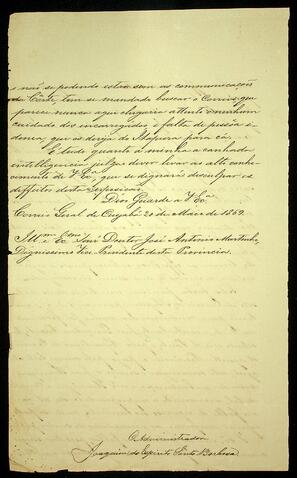 e não se podendo estar sem as communicações
da Côrte, tem se mandado buscar o Correio, que
parece nunca aqui chegaria attento o nenhum
cuidado dos encarregados e falta de pessôa i-
donea, que os dirija do Itapura para cá.
É tudo quanto á minha acanhada
intelligencia julgo dever levar ao alto conhe-
cimento de V. Exª, que se dignará desculpar os
deffeitos desta exposição.
Deos Guarde a V. Exª
Correio Geral de Cuyabá 20 de Maio de 1859.
Illmo e Exmo Snr. Doutor José Antonio Murtinho,
Dignissimo Vice-Presidente desta Provincia.
O Administrador
Joaquim do Espirito Santo Barbosa